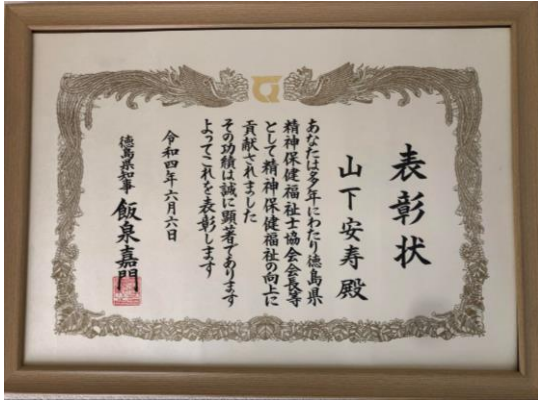 表彰状
山下安寿殿
あなたは多年にわたり徳島県
精神保健福祉士協会会長等
として精神保健福祉の向上に
貢献されました
その功績は誠に顕著であります
よってこれを表彰します
令和四年六月六日
徳島県知事 飯泉嘉門